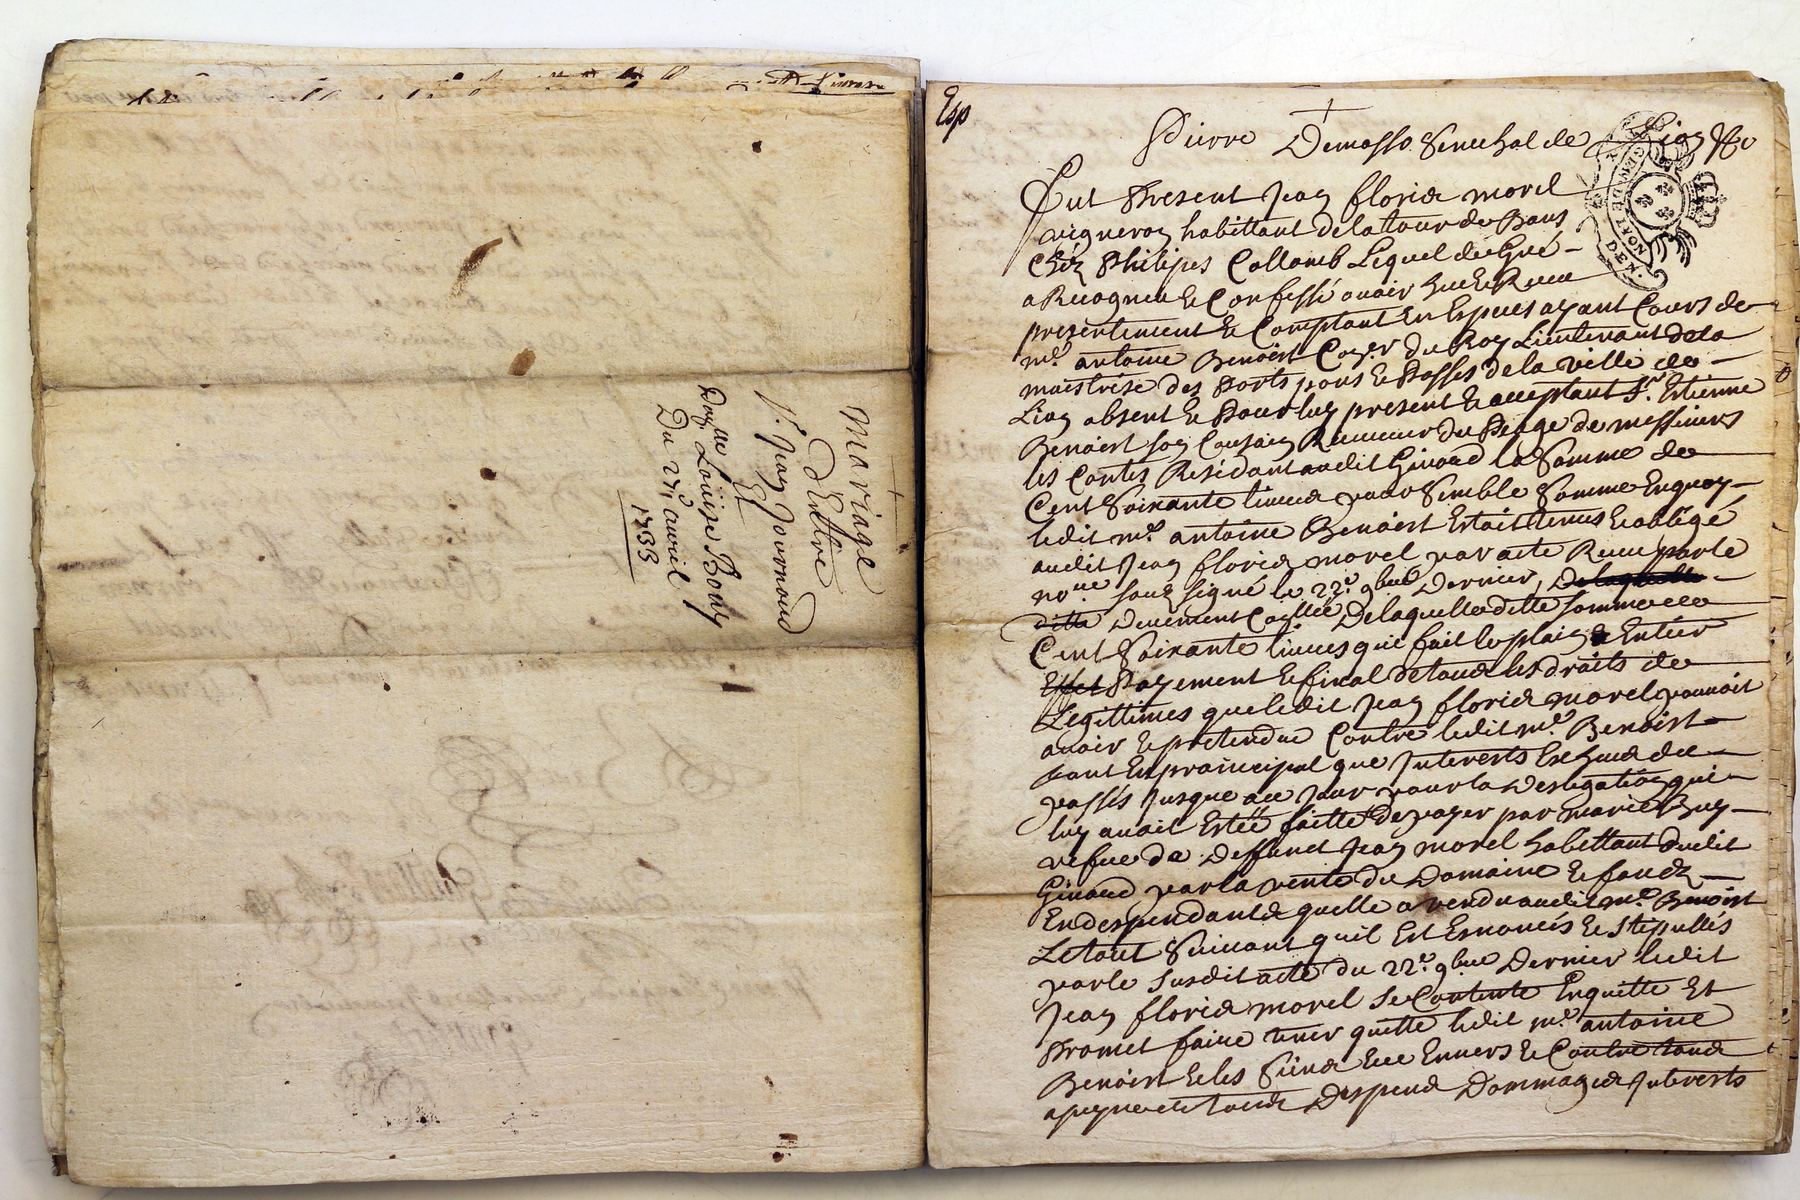 Mariage
D'Entre
Sr. Jean Journoud
Et
Dam.lle Louise Bouy
Du 27e avril
1733
Esp
Pierre Demasso Senechal de Lion &c
Fut Present Jean floris morel
vigneron habittant de la tour de
Chéz Philipes Collomb Lequel de Gré
a Recogneu & Confessé avoir heu & Receu
presentement & Comptant En Especes ayant Cours de
mre. antoine Benoist Con.er du Roy Lieutenant de la
maistrise des Ports ponts & Passes de la ville de
Lion absent & Pour luy present & acceptant Sr. Estienne
Benoist son Cousin Receueur du Peage de messieurs
les Contes Residant audit Giuord la Somme de
Cent Soixante liures pour Semble Somme Enquoy
ledit mre. antoine Benoist Estoit tenus & oblégé
audit Jean floris morel par acte Receu par le
no.re souz signé le 22e. 9bre Dernier, De laquelle
ditte Deuement Con.llée Delaquelle ditte Somme de
Cent Soixante liures qui fait le plain & Entier
Effet Payement & final de tous les droits de
Legittimes que ledit Jean floris morel pouuoit
auoir & pretendre Contre ledit mre. Benoist
tant En princcipal que Interests Escheus de
passés Jusque a ce Jour pour la Deslegation qui
luy auoit Estéé faitte de payer par marie Buy
vefue de Deffunct Jean morel habittant dudit
Giuord par la vente du Domaine & fondz
En despendants quelle a vendu audit mre. Benoist
Le tout Suiuant quil Est Enoncés & Stepullés
par le Susdit acte du 22e. 9bre Dernier ledit
Jean floris morel Se Contente Enquitte Et
Promet faire tenir quitte ledit mre. antoine
Benoist & les Siens Enuers & Contre tous
a peyne de tous Despens Dommages Interests